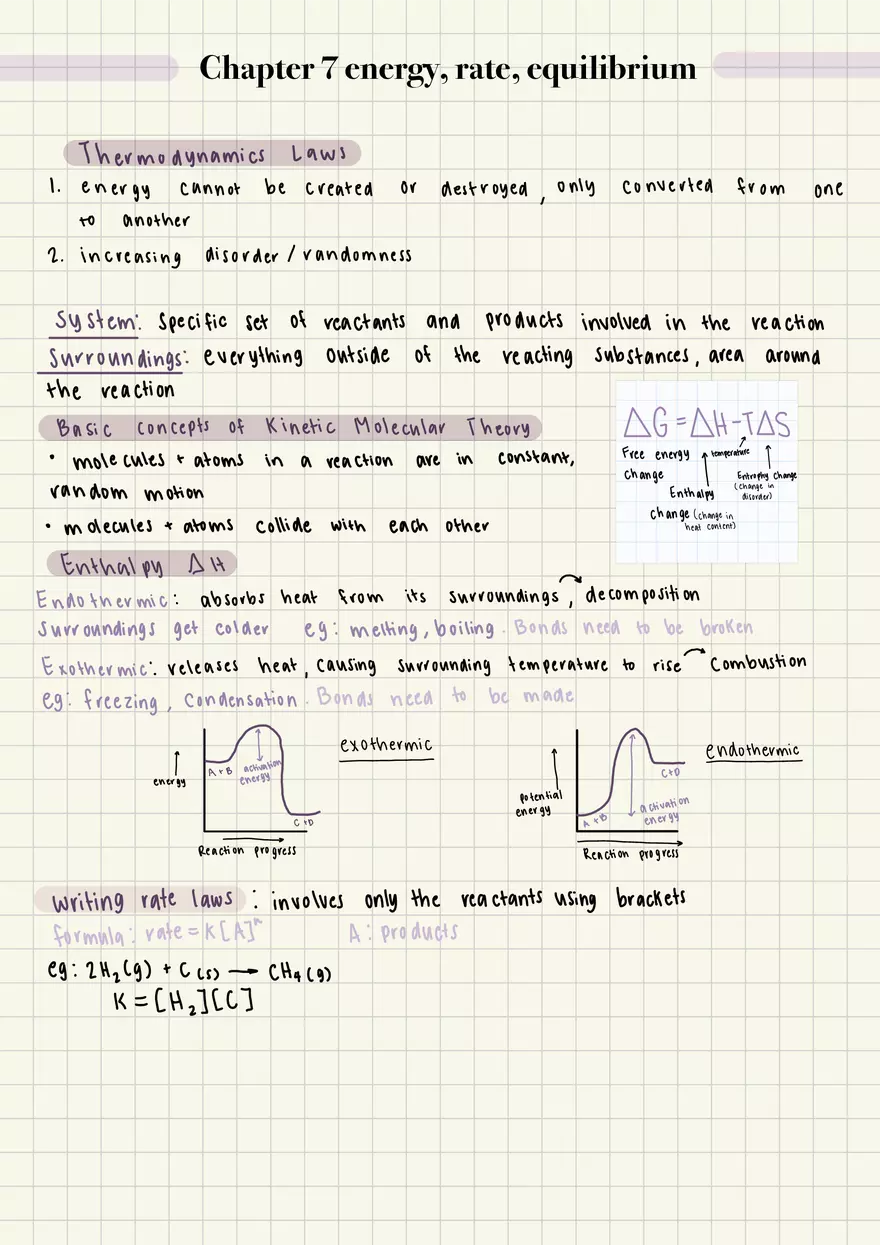 Chapter 7 energy, rate, equilibrium
Thermodynamics Laws
1. energy cannot be created or destroyed, only converted from one
to another
2. increasing disorder / randomness
System: Specific set of reactants and products involved in the reaction
Surroundings: everything outside of the reacting substances, area around
the reaction
Basic concepts of Kinetic Molecular Theory
• molecules + atoms in a reaction are in constant,
random motion
• molecules + atoms collide with each other
ΔG = ΔH - TΔS
Free energy change
temperature
Enthalpy change (change in heat content)
Entrophy change (change in disorder)
Enthalpy ΔH
Endothermic: absorbs heat from its surroundings, decomposition
Surroundings get colder eg: melting, boiling. Bonds need to be broken
Exothermic: releases heat, causing surrounding temperature to rise Combustion
eg: freezing, condensation. Bonds need to be made
exothermic
energy
A + B
activation energy
C + D
Reaction progress
endothermic
potential energy
A + B
activation energy
C + D
Reaction progress
writing rate laws : involves only the reactants using brackets
formula: rate = K[A]ⁿ A: products
eg: 2H₂(g) + C(s) → CH₄(g)
K = [H₂][C]